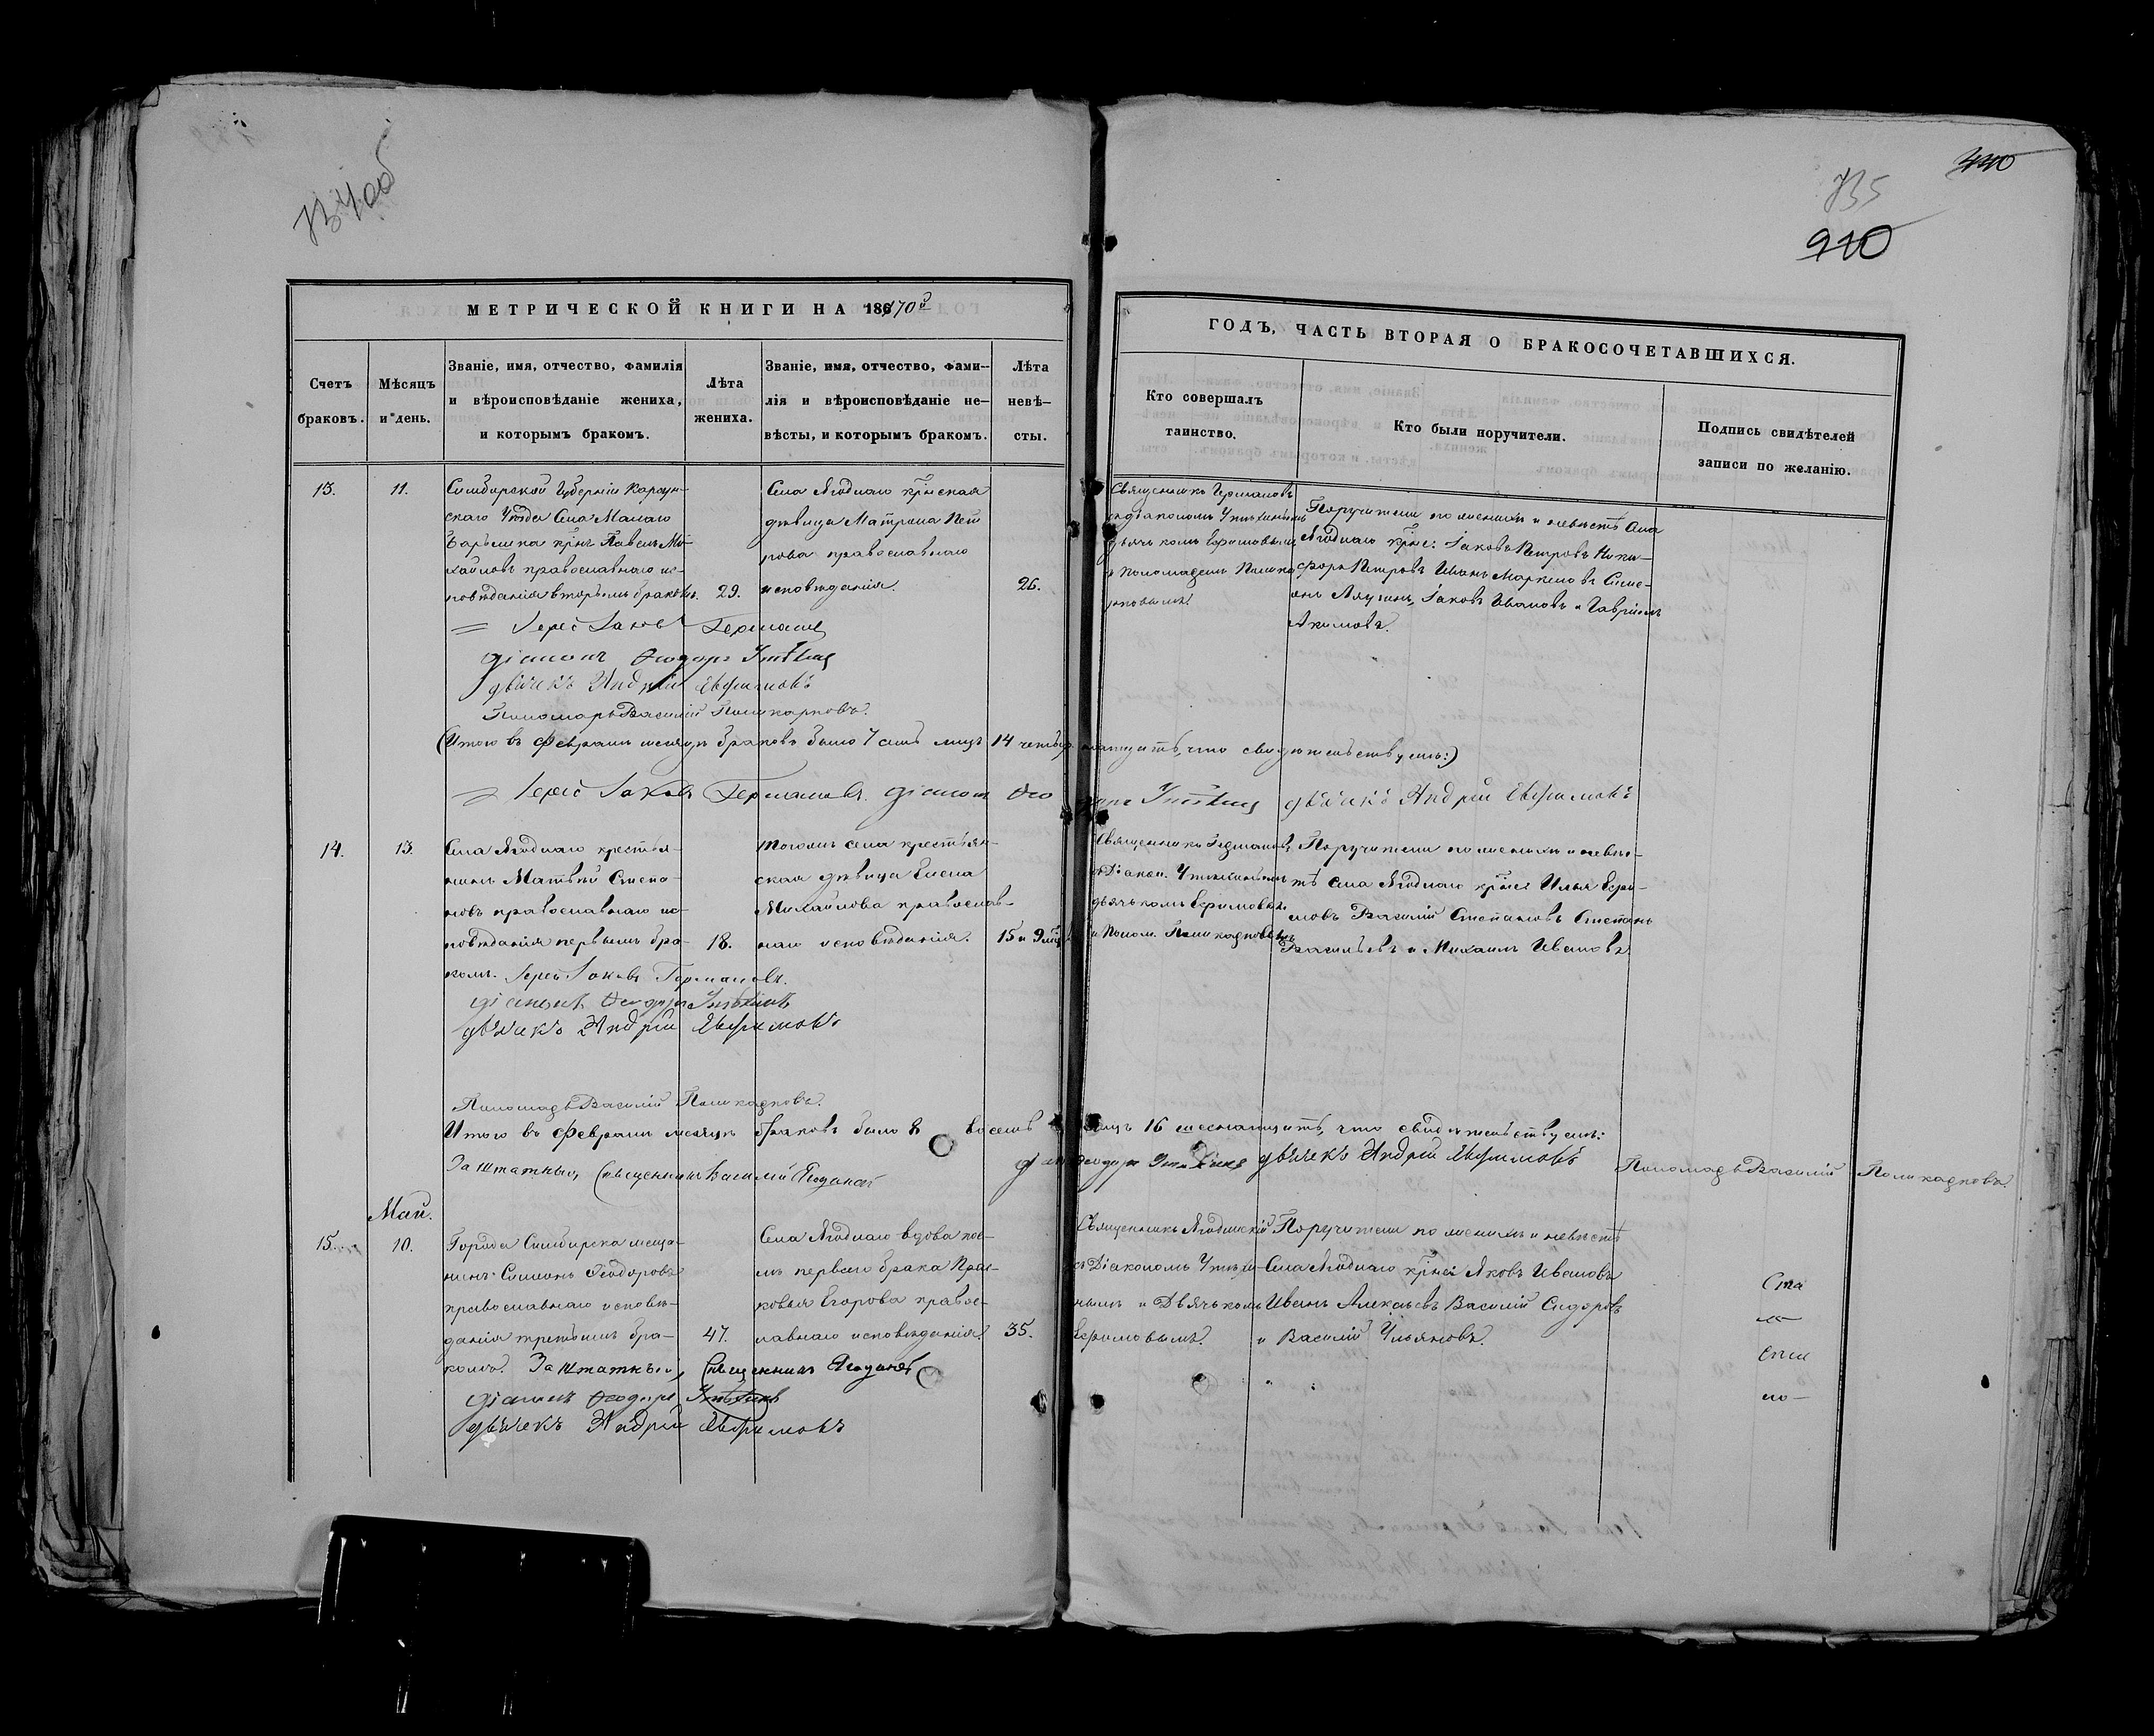 734об
735
910
МЕТРИЧЕСКОЙ КНИГИ НА 1870й
ГОДЪ, ЧАСТЬ ВТОРАЯ О БРАКОСОЧЕТАВШИХСЯ.
Счетъ
браковъ.
Мѣсяцъ
и день.
Званіе, имя, отчество, фамилія
и вѣроисповѣданіе жениха,
и которымъ бракомъ.
Лѣта
жениха.
Званіе, имя, отчество, фами-
лія и вѣроисповѣданіе не-
вѣсты, и которымъ бракомъ.
Лѣта
невѣ-
сты.
Кто совершалъ
таинство.
Кто были поручители.
Подпись свидѣтелей
записи по желанію.
13.
11.
Симбирской Губерніи Карсун-
скаго Уѣзда Села Малаго
Барышка крнъ Павелъ Ми-
хайловъ православнаго ис-
повѣданія вторымъ бракомъ.
29.
Села Ягоднаго крнская
дѣвица Матрона Пет
рова православнаго
исповѣданія.
26.
Священникъ Германовъ
съ діакономъ Утѣхинымъ
дьячкомъ Ефимовымъ
и пономаремъ Полика
рповымъ.
Поручители по женихѣ и невѣстѣ Села
Ягоднаго крне: Іаковъ Петровъ Ники-
форъ Петровъ Иванъ Маркеловъ Симе-
онъ Іаковъ Ивановъ и Гавріилъ
Акимовъ.
Іерей Іаковъ Германовъ
діаконъ Ѳеодоръ Утѣхинъ
дьячекъ Андрей Ефимовъ
Пономарь Василій Поликарповъ.
(Итого въ Февралѣ мѣсяцѣ браковъ было 7 семь лицъ 14 четыр надцать, что свидѣтельствуемъ:)
Іерей Іаковъ Германовъ. діаконъ Ѳео доръ Утѣхинъ дьячекъ Андрей Ефимовъ
14.
13.
Села Ягоднаго крестья-
нинъ Матвѣй Степа-
новъ православнаго ис-
повѣданія первымъ бра-
комъ.
18.
Тогожъ села крестьян-
ская дѣвица Елена
Михайлова православ-
наго исповѣданія.
15 и 9 мѣ
Священникъ Германовъ
съ Діакон. Утѣхинымъ
дьячкомъ Ефимовымъ
и Поном. Поликарповымъ
Поручители по женихѣ и невѣс-
тѣ села Ягоднаго крне Илья Ефи-
мовъ Василій Степановъ Степанъ
Васильевъ и Михаилъ Ивановъ.
Іерей Іаковъ Германовъ.
діаконъ Ѳеодоръ Утѣхинъ
дьячекъ Андрей Ефимовъ
Пономарь Василій Поликарповъ.
Итого въ Февралѣ мѣсяцѣ браковъ было 8 восемь лицъ 16 шеснатцать, что свидѣтельствуемъ:
Заштатный Священникъ Василій Ягодинскій діак Ѳеодоръ Утѣхинъ дьячекъ Андрей Ефимовъ Пономарь Василій Поликарповъ.
Май.
15.
10.
Города Симбирска меща-
нинъ Симеонъ Ѳеодоровъ
православнаго исповѣ-
данія третьимъ бра-
комъ.
47.
Села Ягоднаго вдова пос-
лѣ перваго брака Прас-
ковья Егорова правос-
лавнаго исповѣданія.
35.
Священникъ Ягодинскій
съ Діакономъ Утѣхи-
нымъ и Дьячкомъ
Ефимовымъ.
Поручители по женихѣ и невѣстѣ
Села Ягоднаго крне Яковъ Ивановъ
Иванъ Алексѣевъ Василій Сидоровъ
и Василій Ульяновъ.
Заштатный Священникъ Ягодинскій
діаконъ Ѳеодоръ Утѣхинъ
дьячекъ Андрей Ефимовъ